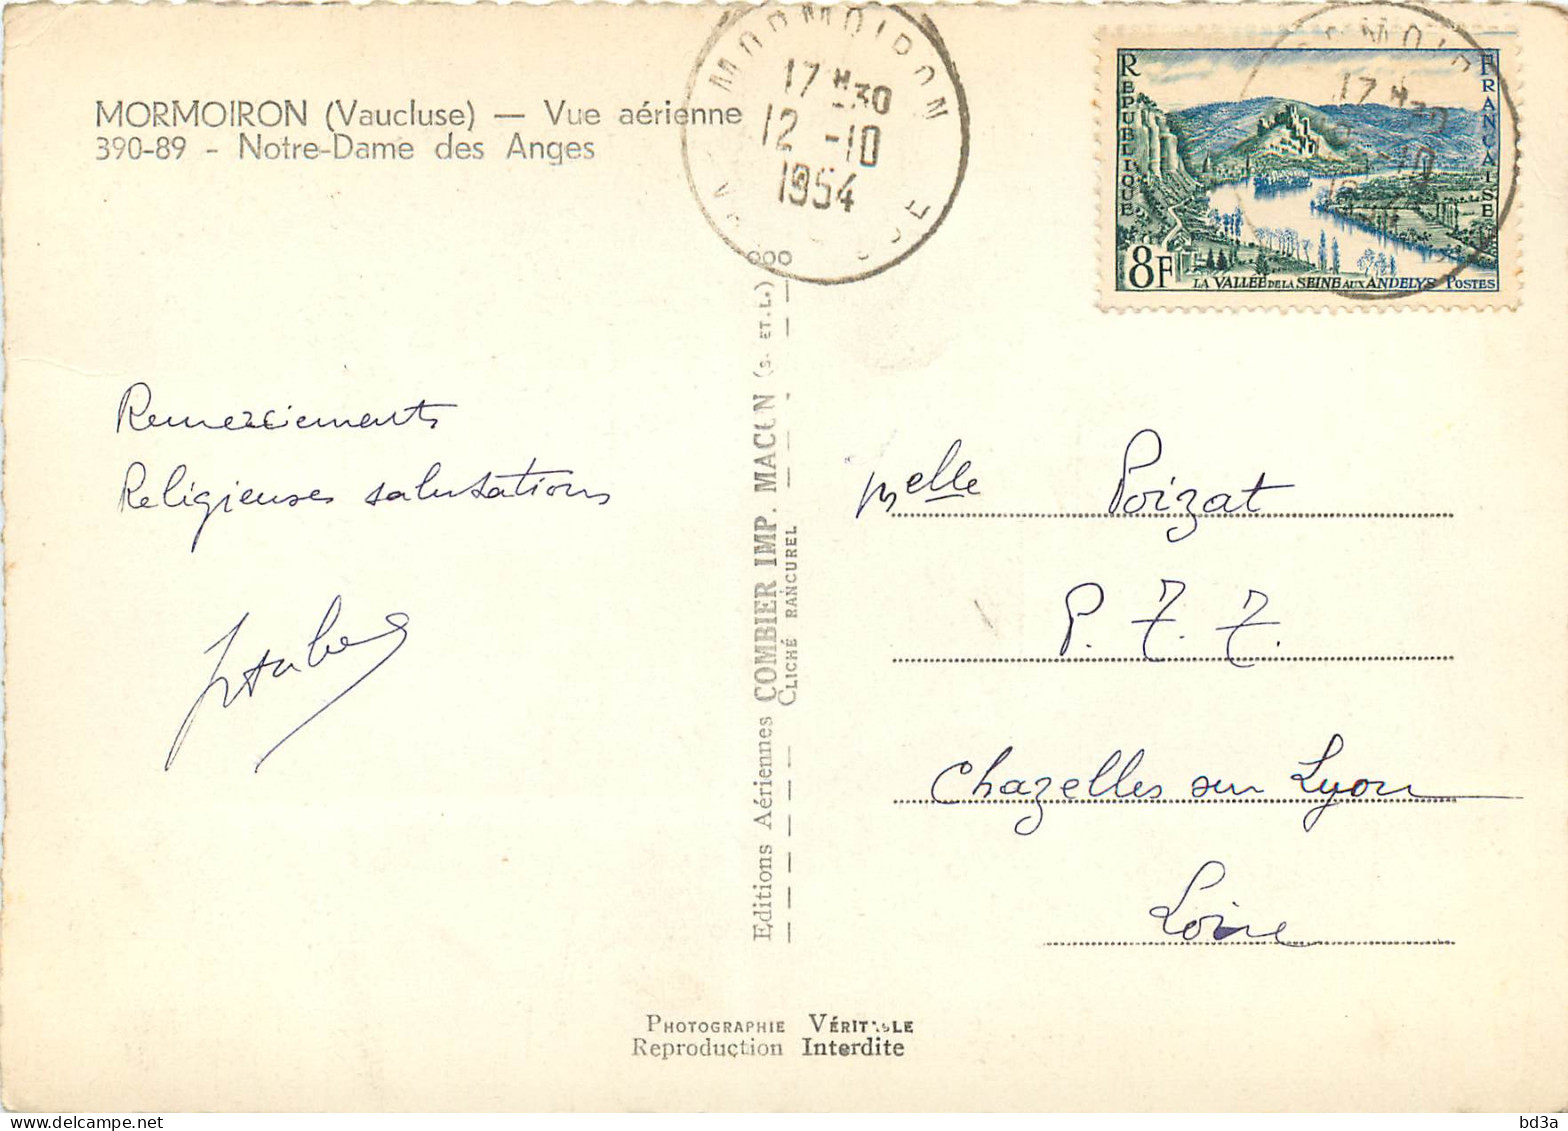 MORMOIRON (Vaucluse) — Vue aérienne
390-89 - Notre-Dame des Anges
MORMOIRON
17 H 30
12 -10
1954
RÉPUBLIQUE
FRANÇAISE
8F
LA VALLÉE DE LA SEINE AUX ANDELYS POSTES
Remerciements
Religieuses salutations
Editions Aériennes COMBIER IMP. MACON (S. ET. L.)
CLICHÉ RANCUREL
Melle Poizat
P. T. T.
Chazelles sur Lyon
Loire
PHOTOGRAPHIE VÉRITABLE
Reproduction Interdite
bd3a